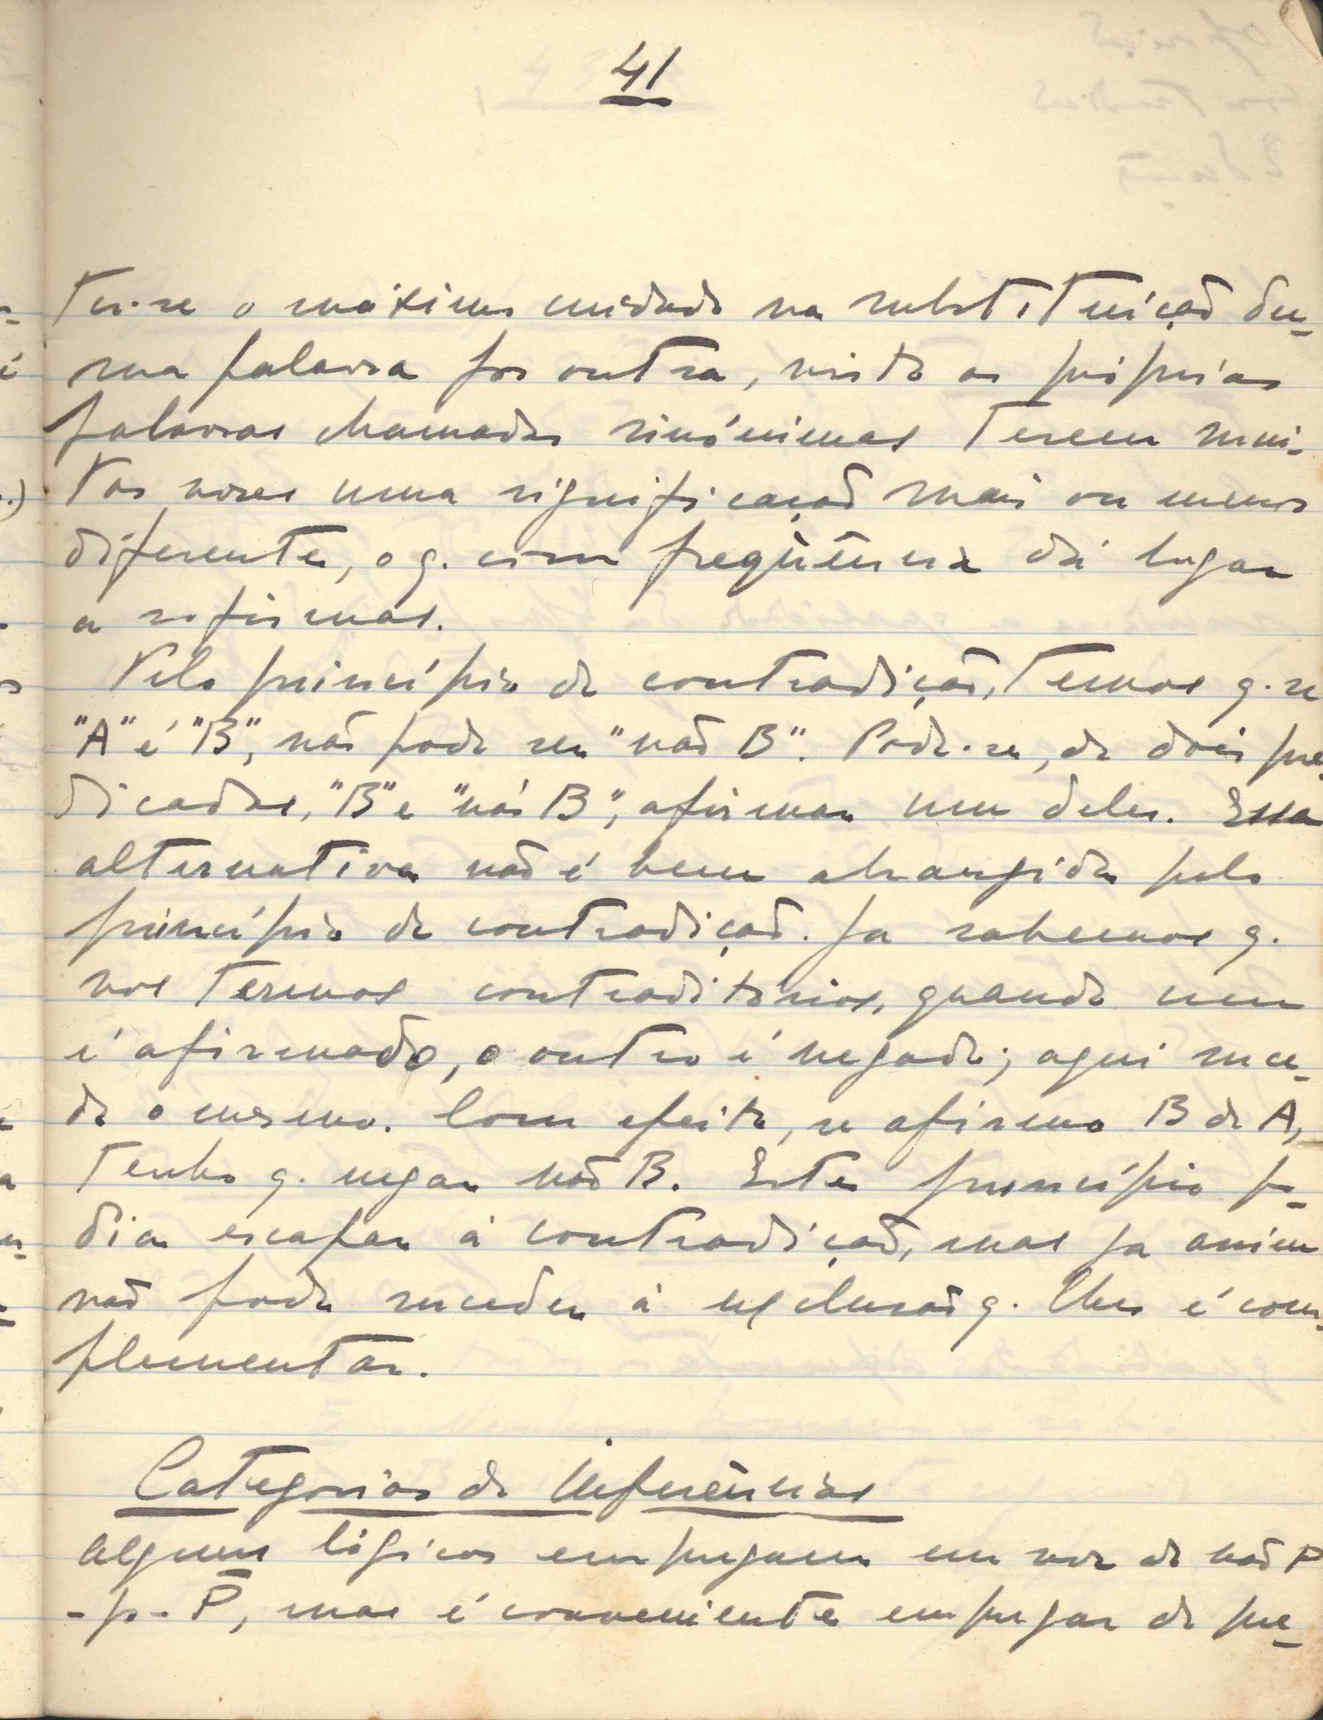 41
ter-se o máximo cuidado na substituíção du-
ma palavra por outra, visto as próprias
palavras chamadas sinónimas terem mui-
tas vezes uma significação mais ou menos
diferente, o q. com freqüência dá lugar
a sofismas.
Pelo princípio de contradição, temos q. se
"A" é "B", não pode ser "não B". Pode-se, de dois pre-
dicados, "B" e "não B", afirmar um deles. Essa
alternativa não é bem abrangida pelo
princípio de contradição. Ja sabemos q.
nos termos contraditórios, quando um
é afirmado, o outro é negado; aqui suce-
de o mesmo. Com efeito, se afirmo B de A,
tenho q. negar não B. Este princípio po-
dia escapar á contradição, mas ja assim
não pode suceder á exclusão q. lhes é com-
plementar.
Categorias de Inferências
Alguns lógicos empregam em vez de não P
-p- P̄, mas é conveniente empregar de pre-